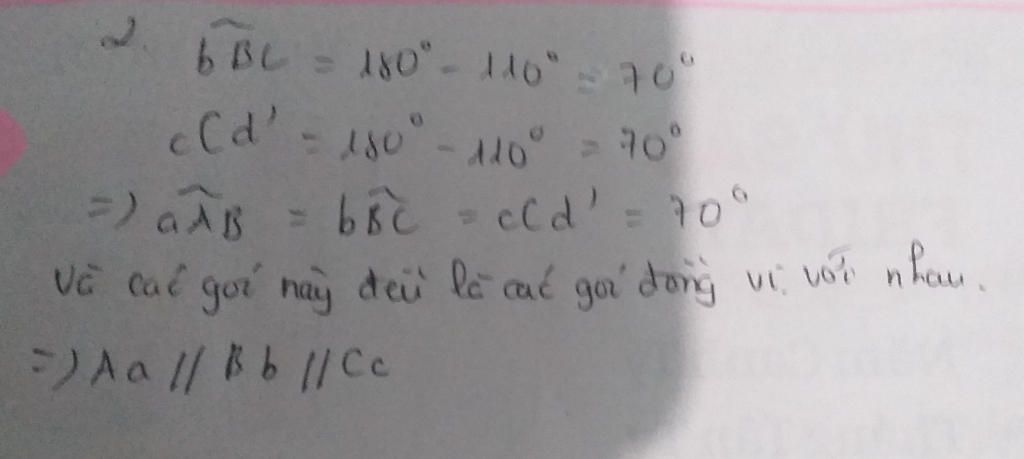 2. bB̂C = 180° - 110° = 70°
cCd' = 180° - 110° = 70°
=) aÂB = bB̂C = cCd' = 70°
Và các gói này đều là các gói đồng vị với nhau.
=) Aa // Bb // Cc